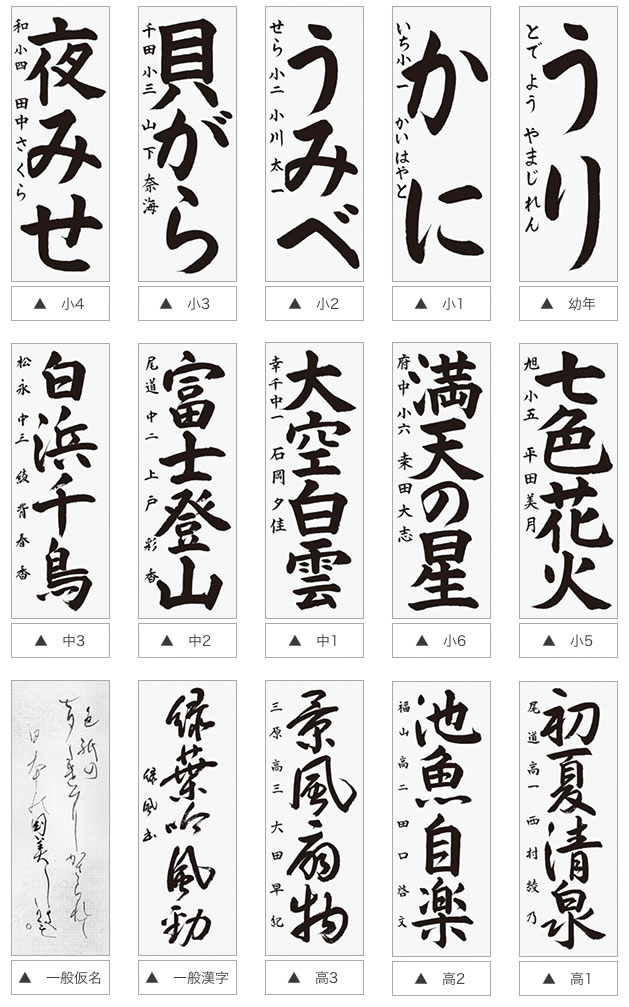 うり
とで よう やまじれん
▲ 幼年
かに
いち小一 かいはやと
▲ 小1
うみべ
せら 小二 小川太一
▲ 小2
貝がら
千田 小三 山下 奈海
▲ 小3
夜みせ
和 小四 田中さくら
▲ 小4
七色花火
旭 小五 平田美月
▲ 小5
満天の星
府中 小六 桒田大志
▲ 小6
大空白雲
幸千中一 石岡夕佳
▲ 中1
富士登山
尾道 中二 上戸 彩香
▲ 中2
白浜千鳥
松永 中三 春香
▲ 中3
初夏清泉
尾道 高一 西村 綾乃
▲ 高1
池魚自楽
福山 高二 田口 啓文
▲ 高2
景風扇物
三原 高三 大田 早紀
▲ 高3
緑葉吟風勁
緑風
▲ 一般漢字
色紙の
日本の国美し
▲ 一般仮名